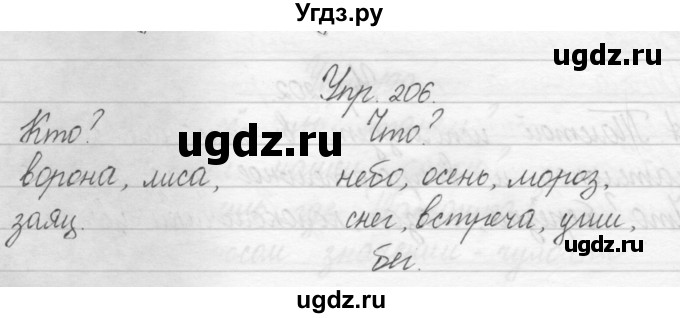 Угдз.ру
ugdz.ru
ugdz.ru
Упр. 206.
Кто? Что?
ugdz.ru
ворона, лиса, небо, осень, мороз,
заяц. снег, встреча, уши,
бег.
ugdz.ru
ugdz.ru
ugdz.ru